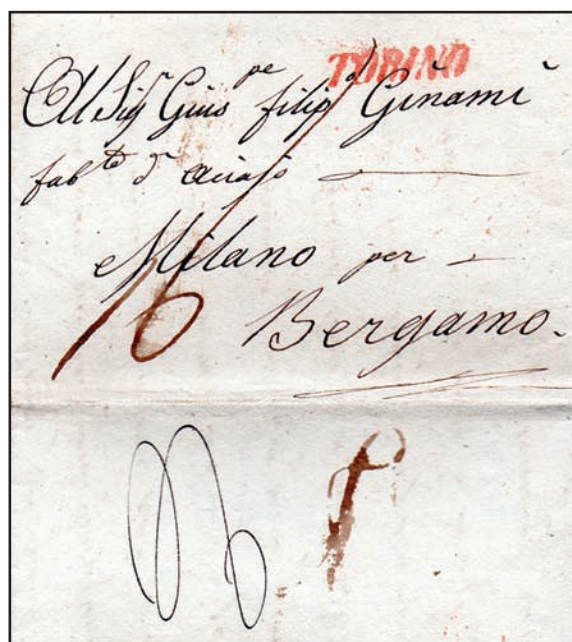 TORINO
Al Sigr Giuspe filipo Ginami
fabte dr aciajo
Milano per
16
Bergamo.